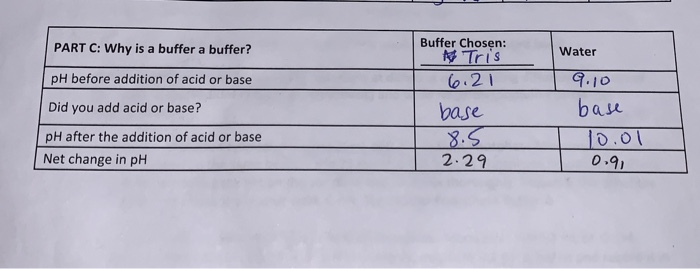 PART C: Why is a buffer a buffer? Buffer Chosen: Water
Tris
pH before addition of acid or base 6.21 9.10
Did you add acid or base? base base
pH after the addition of acid or base 8.5 10.01
Net change in pH 2.29 0.91